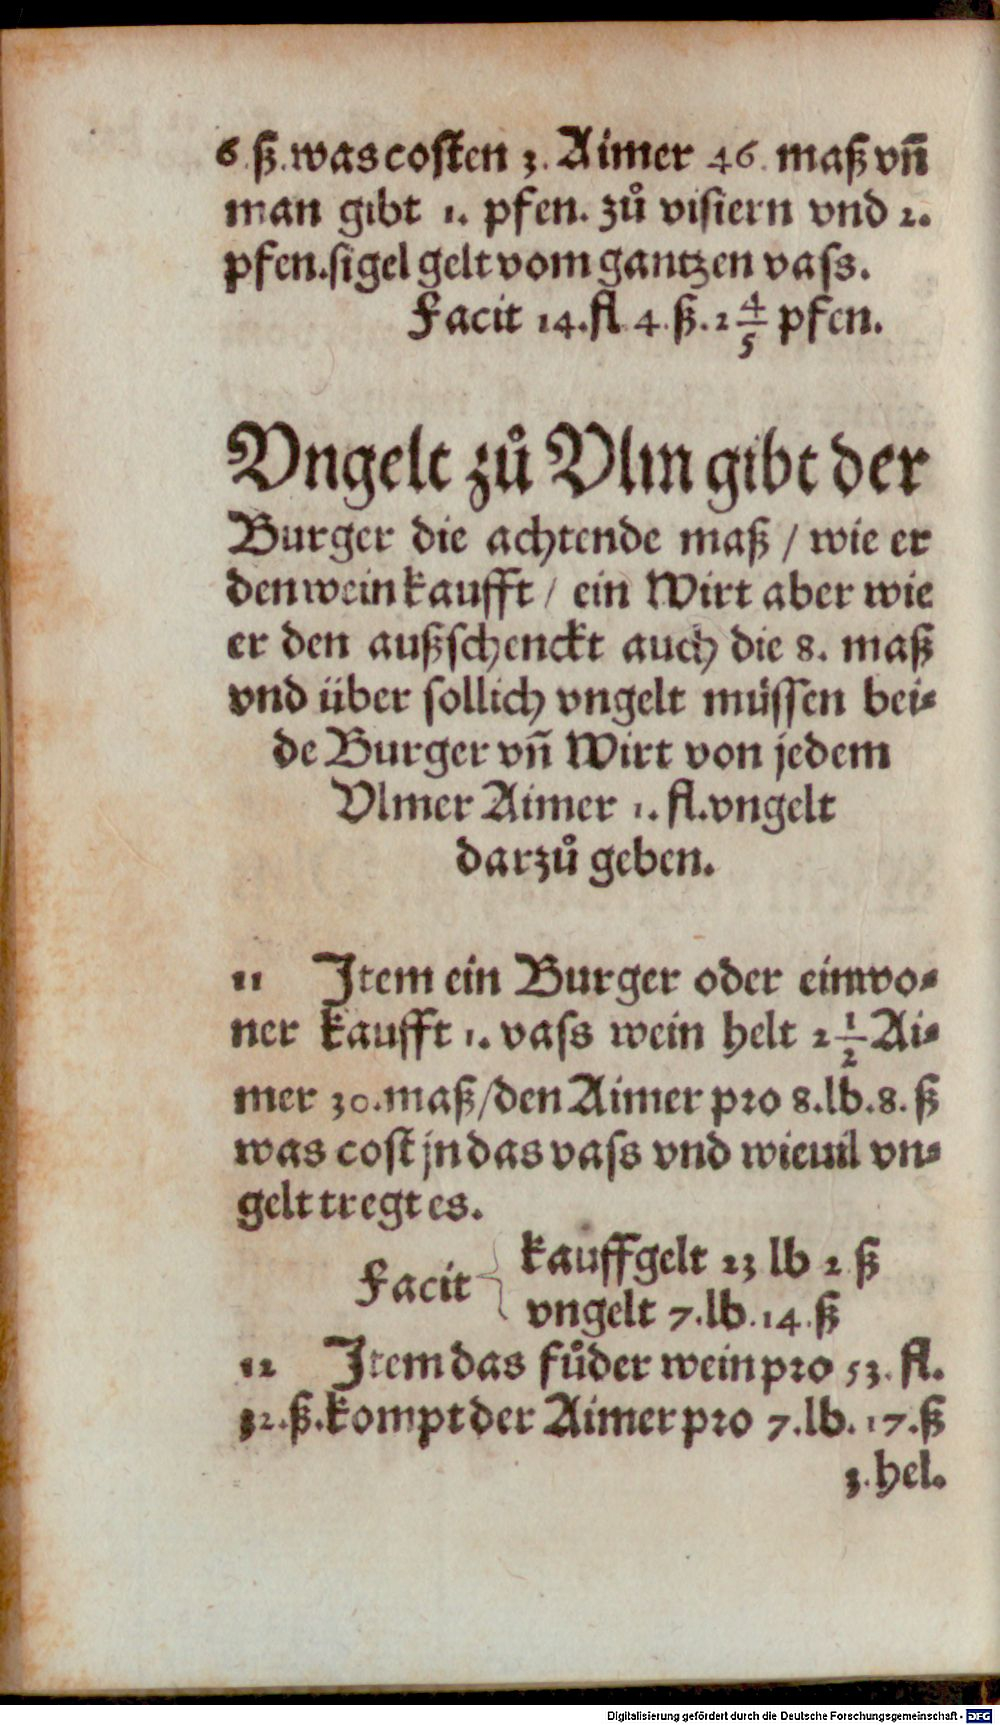 6 ß. was costen 3. Aimer 46. maß vñ
man gibt 1. pfen. zů visiern vnd 2.
pfen. sigel gelt vom gantzen vass.
Facit 14. fl. 4. ß. 2 4/5 pfen.
Vngelt zů Vlm gibt der
Burger die achtende maß / wie er
den wein kaufft / ein Wirt aber wie
er den außschenckt auch die 8. maß
vnd über sollich vngelt müssen bei⸗
de Burger vñ Wirt von jedem
Vlmer Aimer 1. fl. vngelt
darzů geben.
11 Item ein Burger oder einwo⸗
ner kaufft 1. vass wein helt 2 1/2 Ai⸗
mer 30. maß / den Aimer pro 8. lb. 8. ß
was cost jn das vass vnd wieuil vn⸗
gelt tregt es.
Facit { kauffgelt 23 lb 2 ß
vngelt 7. lb. 14. ß
12 Item das fůder wein pro 53. fl.
32. ß. kompt der Aimer pro 7. lb. 17. ß
3. hel.
Digitalisierung gefördert durch die Deutsche Forschungsgemeinschaft - DFG